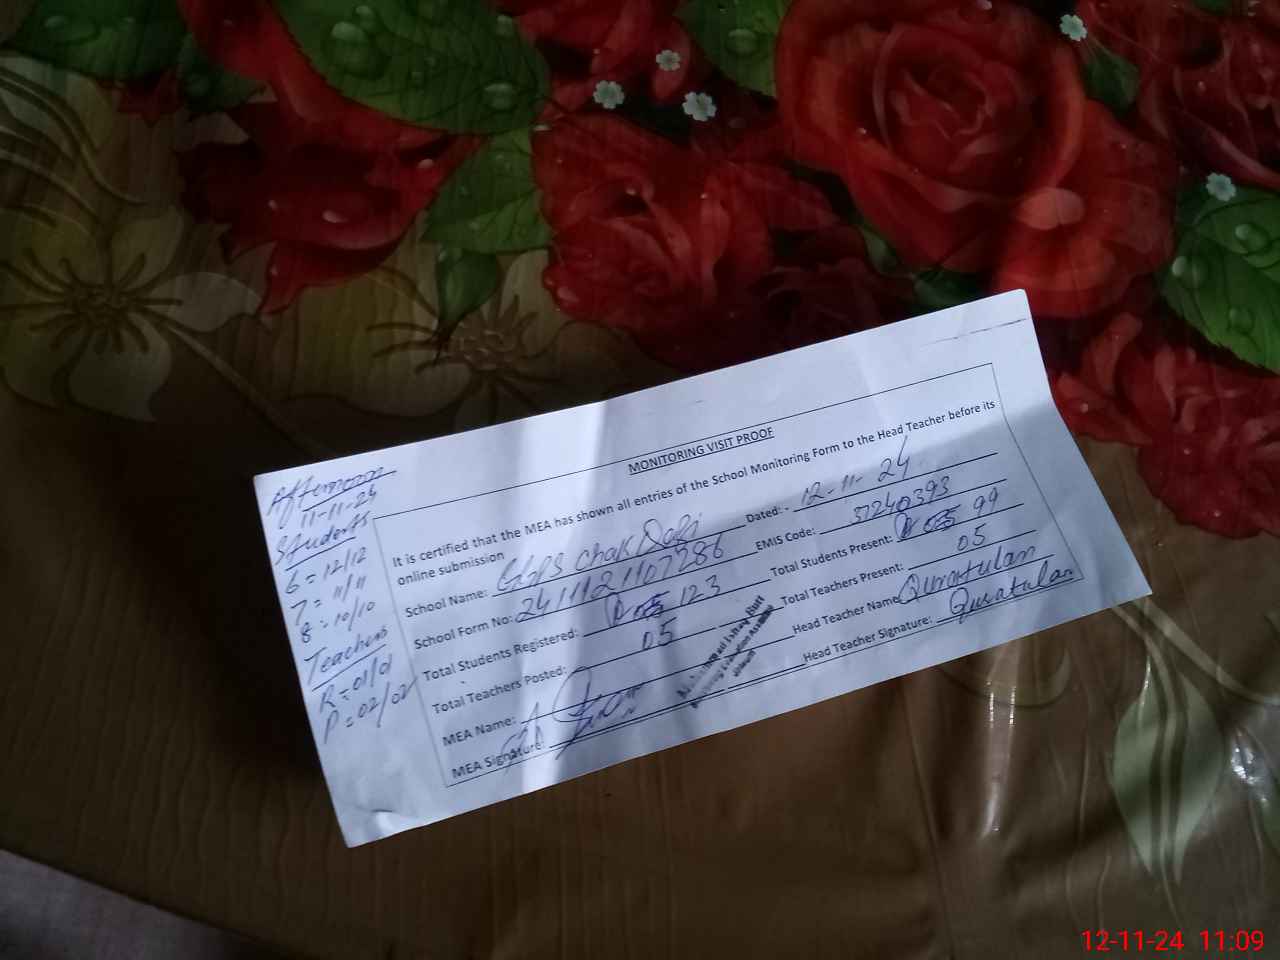 MONITORING VISIT PROOF
It is certified that the MEA has shown all entries of the School Monitoring Form to the Head Teacher before its
online submission
School Name: GGPS Chak Qazi Dated: - 12-11-24
School Form No: 241112 1107286 EMIS Code: 37240393
Total Students Registered: 123 Total Students Present: 99
Total Teachers Posted: 05 Total Teachers Present: 05
MEA Name: Head Teacher Name Quratulan
MEA Signature: Head Teacher Signature: Quratulan
Afternoon
11-11-24
Students
6 = 12/12
7 = 11/11
8 = 10/10
Teachers
R = 01/01
P = 02/02
12-11-24 11:09